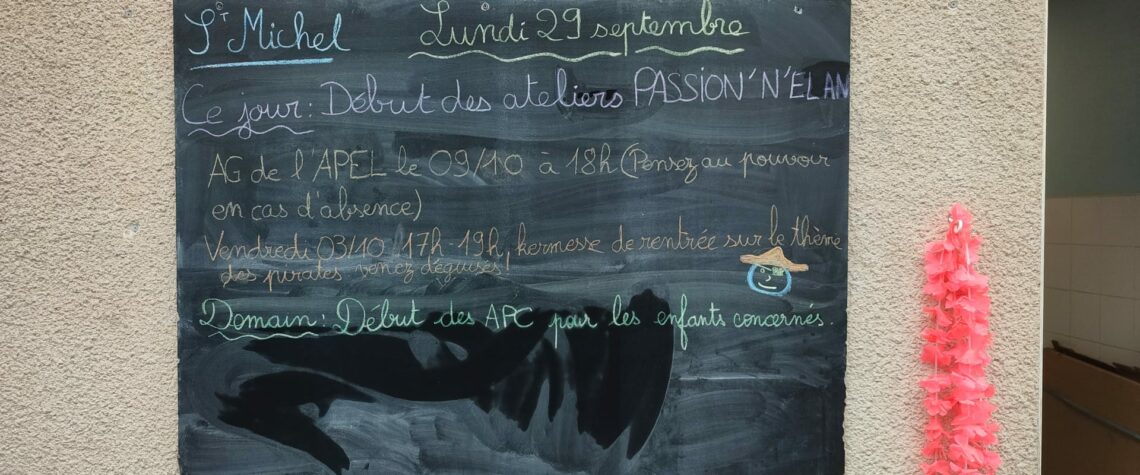 St Michel
Lundi 29 septembre
Ce jour : Début des ateliers PASSION'N'ELAN
AG de l'APEL le 09/10 à 18h (Pensez au pouvoir
en cas d'absence)
Vendredi 03/10 17h-19h, kermesse de rentrée sur le thème
des pirates venez déguisés!
Demain : Début des APC pour les enfants concernés.